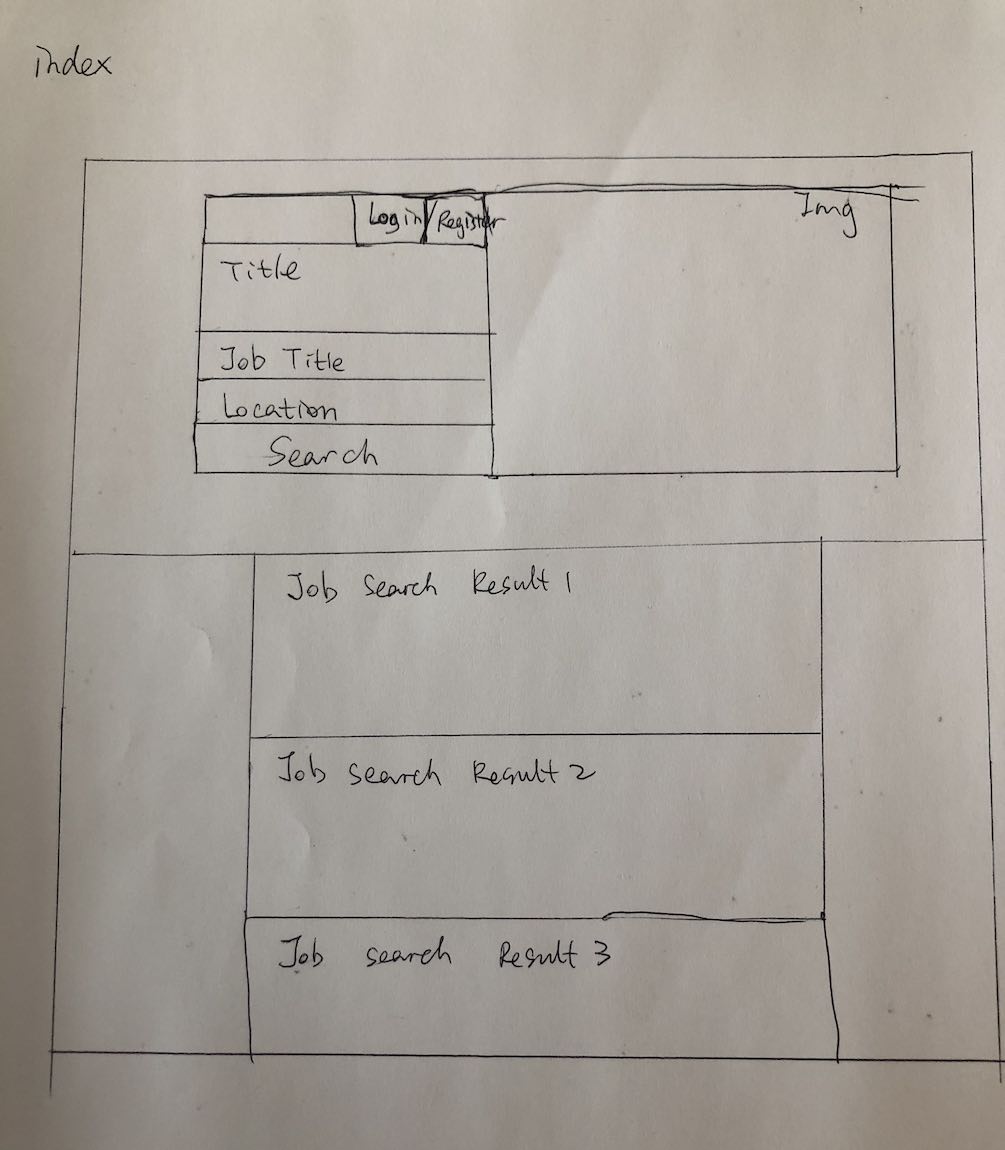 index
Login Register
Img
Title
Job Title
Location
Search
Job Search Result 1
Job search Result 2
Job search Result 3